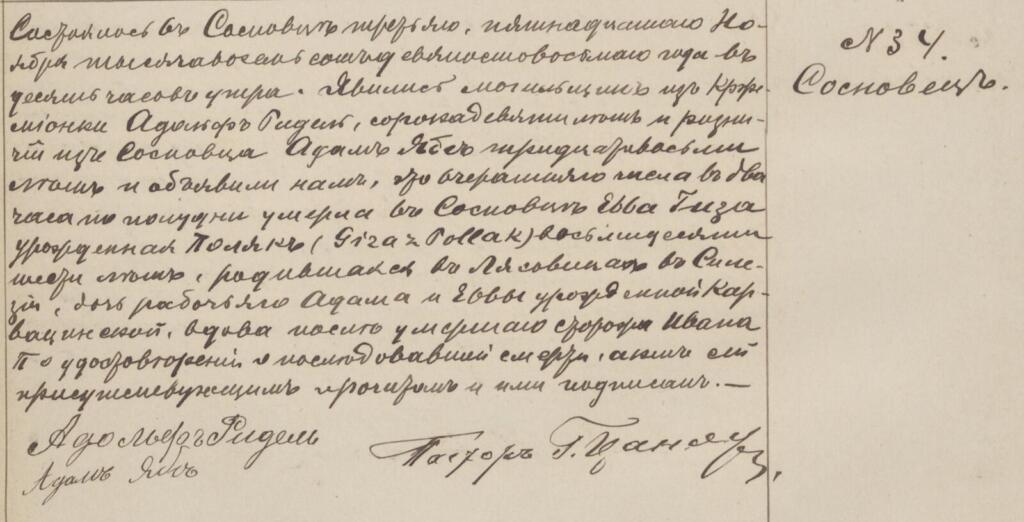 Состоялось въ Сосновицѣ третьяго, пятнадцатаго Но-
ября тысяча восемьсотъ девяностовосьмаго года въ
десять часовъ утра. Явились могильщикъ изъ Крже-
міонки Адольфъ Ридель, сорока девяти лѣтъ и
изъ Сосновца Адамъ Ябъ тридцативосьми
лѣтъ и объявили намъ, что вчерашняго числа въ два
часа по полудни умерла въ Сосновицѣ Евва Гиза
урожденная Полякъ (Giza z Pollak) восьмидесяти
шести лѣтъ, родившаяся въ Лясовицахъ въ Силе-
зіи, дочь рабочьяго Адама и Еввы урожденной Кар-
вацинской, вдова послѣ умершаго сторожа Ивана
По удостовѣреніи о послѣдовавшей смерти, актъ сей
присутствующимъ прочитанъ и ими подписанъ. —
Адольфъ Ридель
Адамъ Ябъ
Пасторъ Г. Цандеръ
N 34.
Сосновецъ.